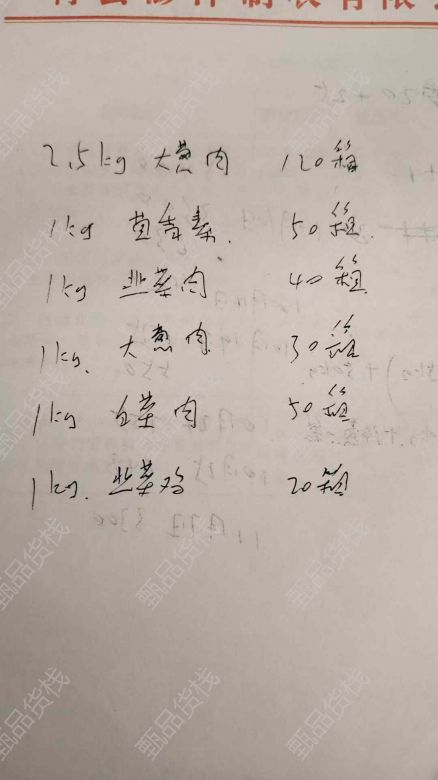 2.5kg 大葱肉 120箱
1kg 茴香素. 50箱.
1kg 韭菜肉 40箱
1kg. 大葱肉 30箱
1kg 白菜肉 50箱
1kg. 韭菜鸡 20箱
甄品货栈